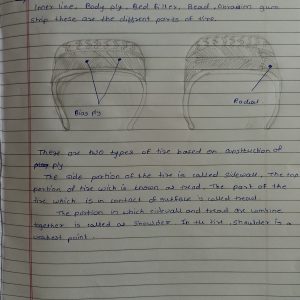 Inner line, Body ply, Bed filler, Bead, Abrasion gum
ship these are the diffrent parts of tire.
Bias ply
Radial
These are two types of tire based on construction of
ply
The side portion of the tire is called sidewall. The top
portion of tire wich is known as tread. The part of the
tire which is in contact of surface is called tread.
The portion in which sidewall and tread are combine
together is called as shoulder. In the tire, shoulder is a
weakest point.